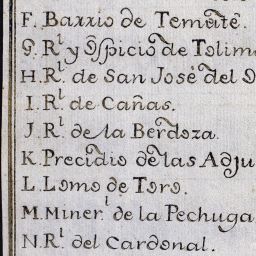 F. Barrio de Temeste.
G. R.l y Ospicio de Tolim
H. R.l de San José del
I. R.l de Cañas.
J. R.l de la Berdoza.
K. Precidio de las Adju
L. Lomo de Toro.
M. Miner.l de la Pechuga
N. R.l del Cardonal.